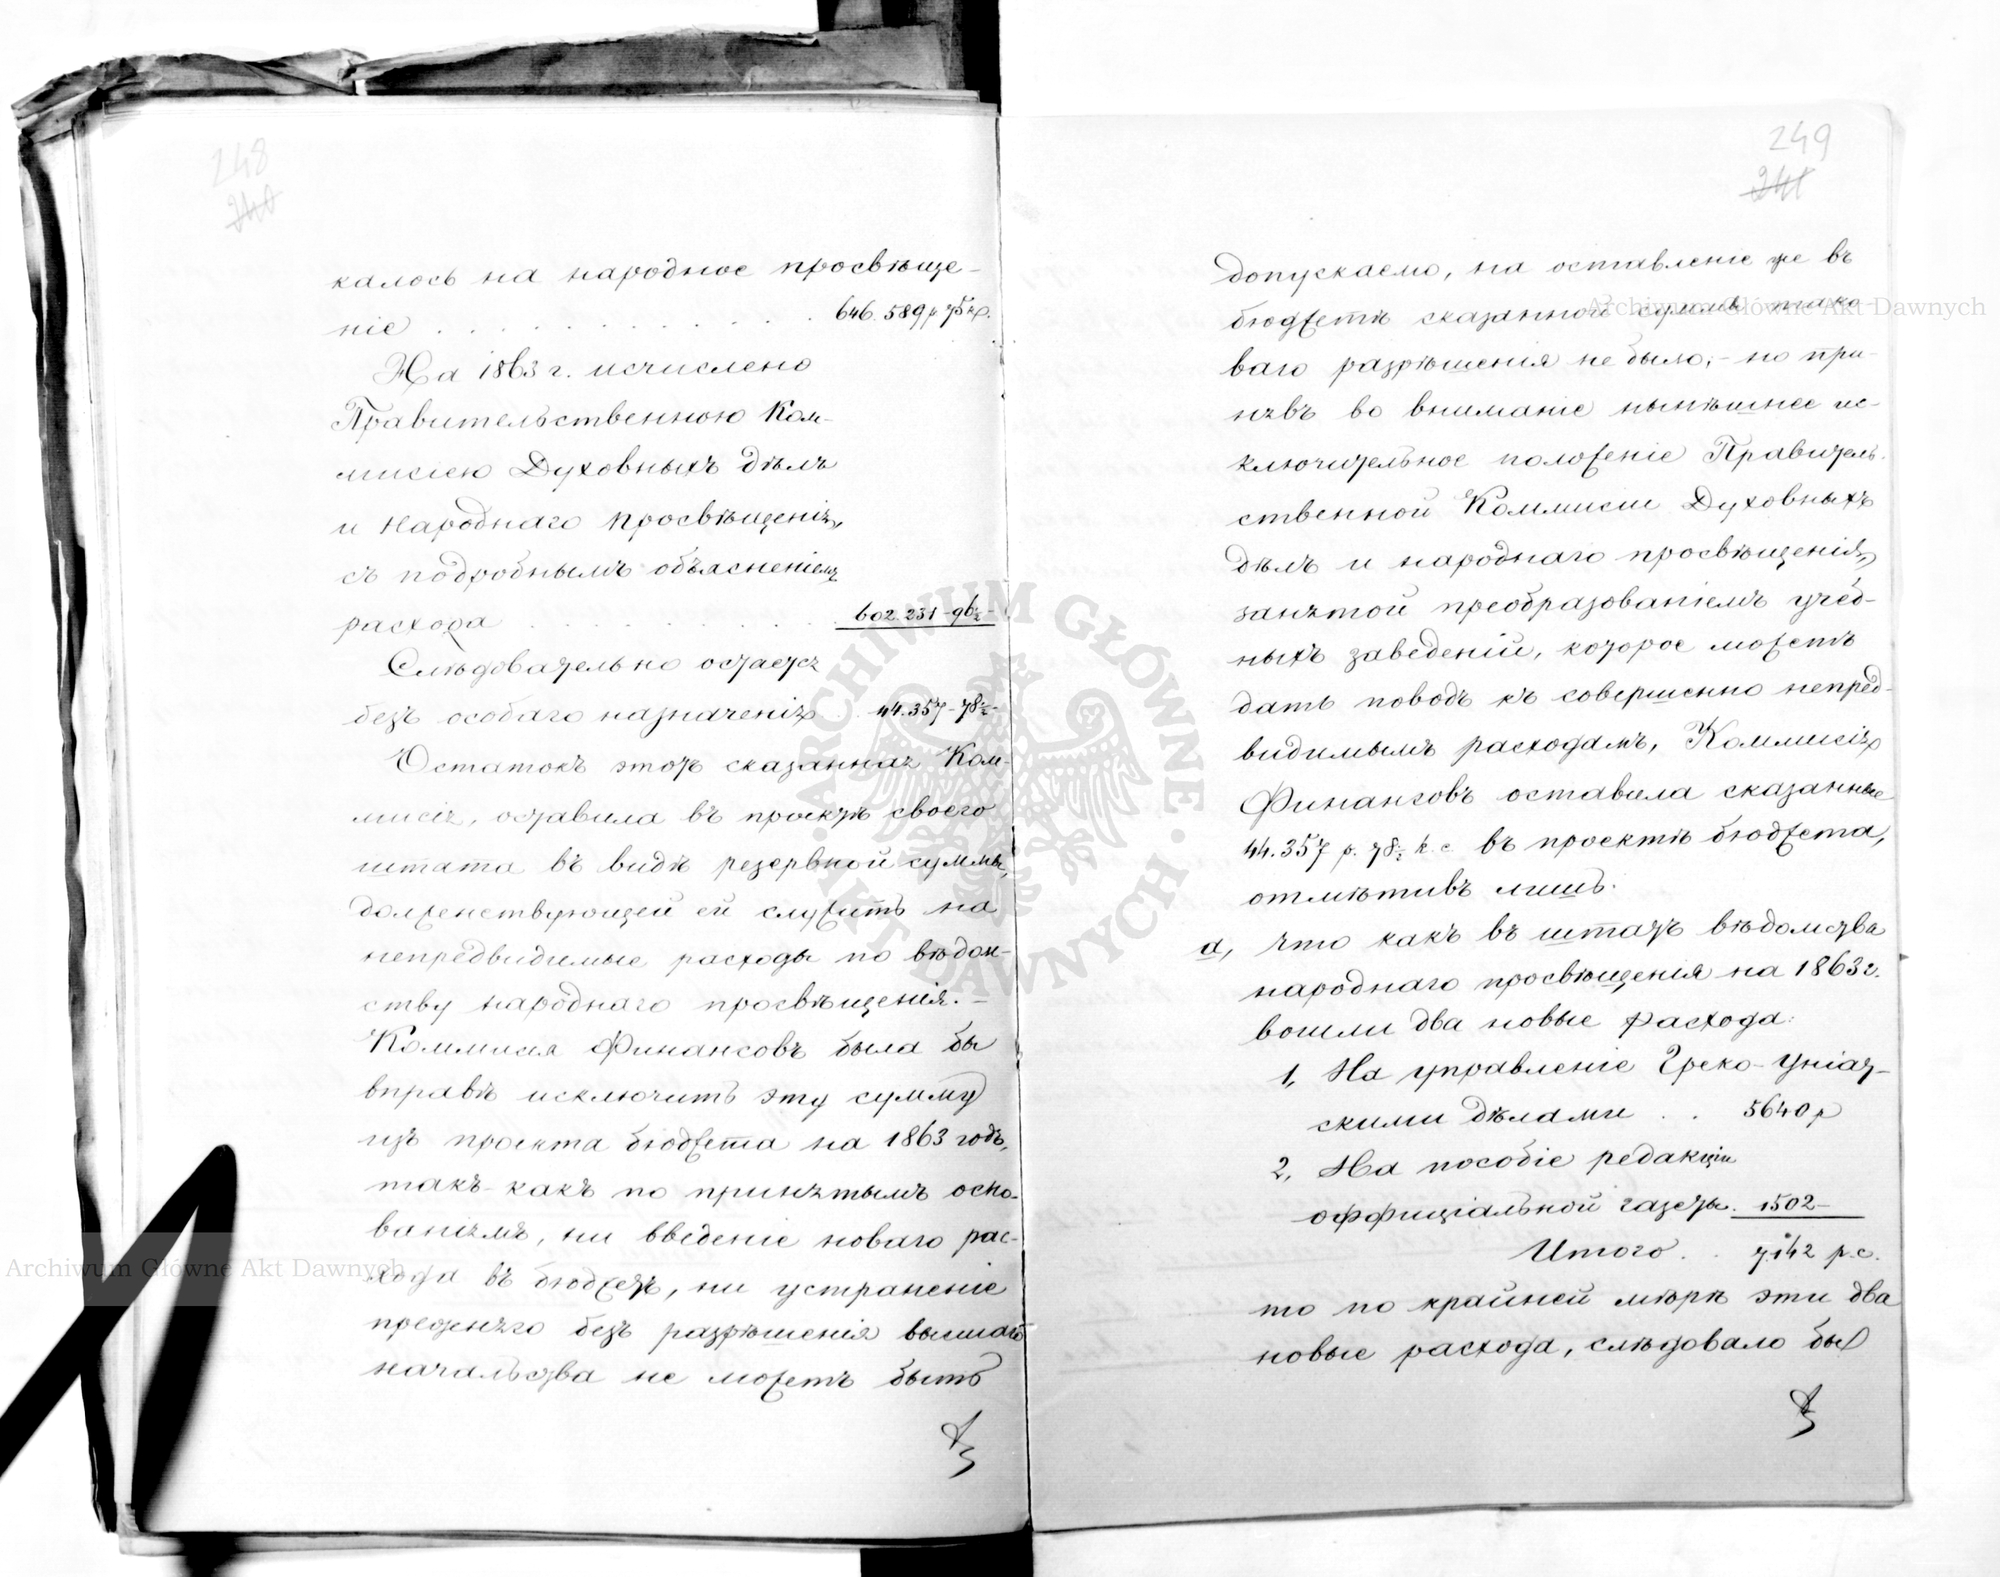 248
240
калось на народное просвѣще-
ніе . . . . . . . . . . . . 646.589 р 75 кр.
На 1863 г. исчислено
Правительственною Ком-
мисіею Духовныхъ дѣлъ
и Народнаго просвѣщенія,
съ подробнымъ объясненіемъ
расхода . . . . . . . . . 602.231-96½-
Слѣдовательно остается
безъ особаго назначенія . . 44.357-78½-
Остатокъ этотъ сказанная Ком-
мисія, оставила въ проектѣ своего
штата въ видѣ резервной суммы,
долженствующей ей служить на
непредвидимые расходы по вѣдом-
ству народнаго просвѣщенія.-
Коммисія Финансовъ была бы
вправѣ исключить эту сумму
изъ проекта бюджета на 1863 годъ,
такъ какъ по принятымъ осно-
ваніямъ, ни введеніе новаго рас-
хода въ бюджетъ, ни устраненіе
прежняго безъ разрѣшенія высшаго
начальства не можетъ быть
249
241
допускаемо, на оставленіе же въ
бюджетѣ сказанной суммы тако-
ваго разрѣшенія не было;- но при-
нявъ во вниманіе нынѣшнее ис-
ключительное положеніе Правитель-
ственной Коммисіи Духовныхъ
дѣлъ и народнаго просвѣщенія,
занятой преобразованіемъ учеб-
ныхъ заведеній, которое можетъ
дать поводъ къ совершенно непред-
видимымъ расходамъ, Коммисія
Финансовъ оставила сказанные
44.357 р. 78½ к. с. въ проектѣ бюджета,
отмѣтивъ лишь:
а, что какъ въ штатъ вѣдомства
народнаго просвѣщенія на 1863 г.
вошли два новые расхода:
1, На управленіе Греко-Уніат-
скими дѣлами . . 5640 р
2, На пособіе редакціи
оффиціальной газеты. 1502-
Итого . . 7.142 р. с.
то по крайней мѣрѣ эти два
новые расхода, слѣдовало бы
Archiwum Główne Akt Dawnych
Archiwum Główne Akt Dawnych
ARCHIWUM GŁÓWNE · AKT DAWNYCH ·